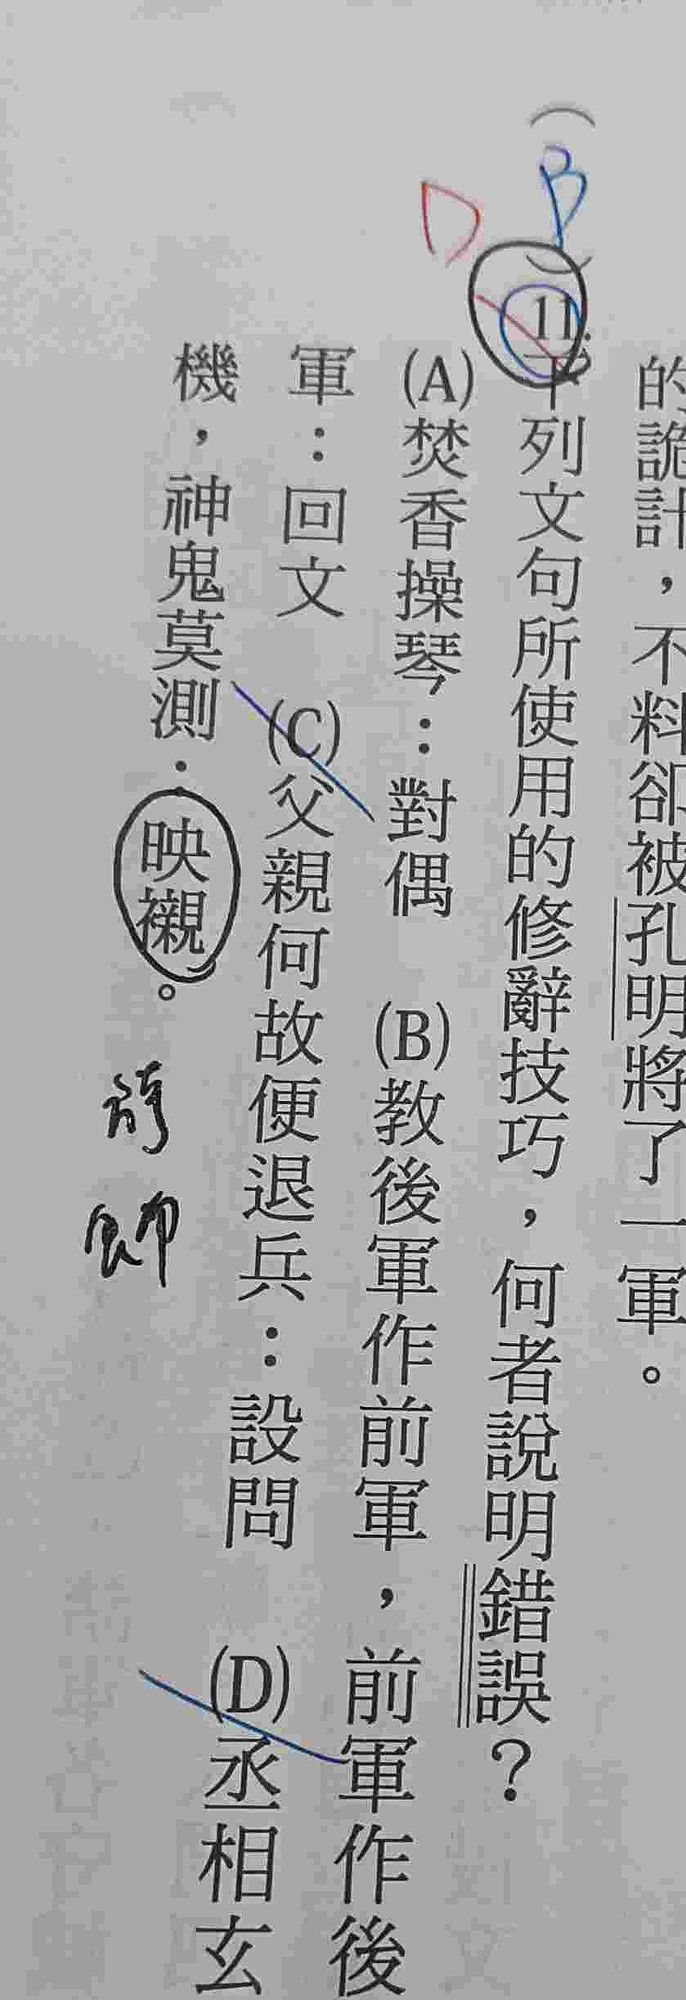 的詭計，不料卻被孔明將了一軍。
（B）11.下列文句所使用的修辭技巧，何者說明錯誤？
D
(A)焚香操琴：對偶　(B)教後軍作前軍，前軍作後
軍：回文　(C)父親何故便退兵：設問　(D)丞相玄
機，神鬼莫測：映襯。